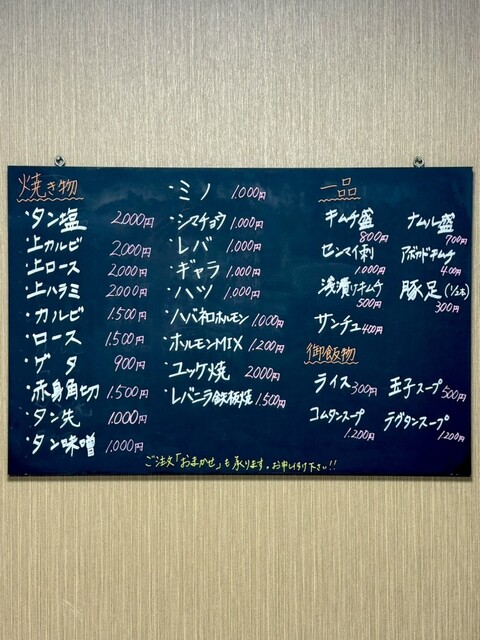 焼き物
・タン塩 2,000円
・上カルビ 2,000円
・上ロース 2,000円
・上ハラミ 2,000円
・カルビ 1,500円
・ロース 1,500円
・ゲタ 900円
・赤身角切 1,500円
・タン先 1,000円
・タン味噌 1,000円
・ミノ 1,000円
・シマチョウ 1,000円
・レバ 1,000円
・ギャラ 1,000円
・ハツ 1,000円
・ハバネロホルモン 1,000円
・ホルモンMIX 1,200円
・ユッケ焼 2,000円
・レバニラ鉄板焼 1,500円
一品
キムチ盛 800円
ナムル盛 700円
センマイ刺 1,000円
アボカドキムチ 400円
浅漬けキムチ 500円
豚足(1/2本) 300円
サンチュ 400円
御飯物
ライス 300円
玉子スープ 500円
コムタンスープ 1,200円
テグタンスープ 1,200円
ご注文「おまかせ」も承ります。お申し付け下さい!!